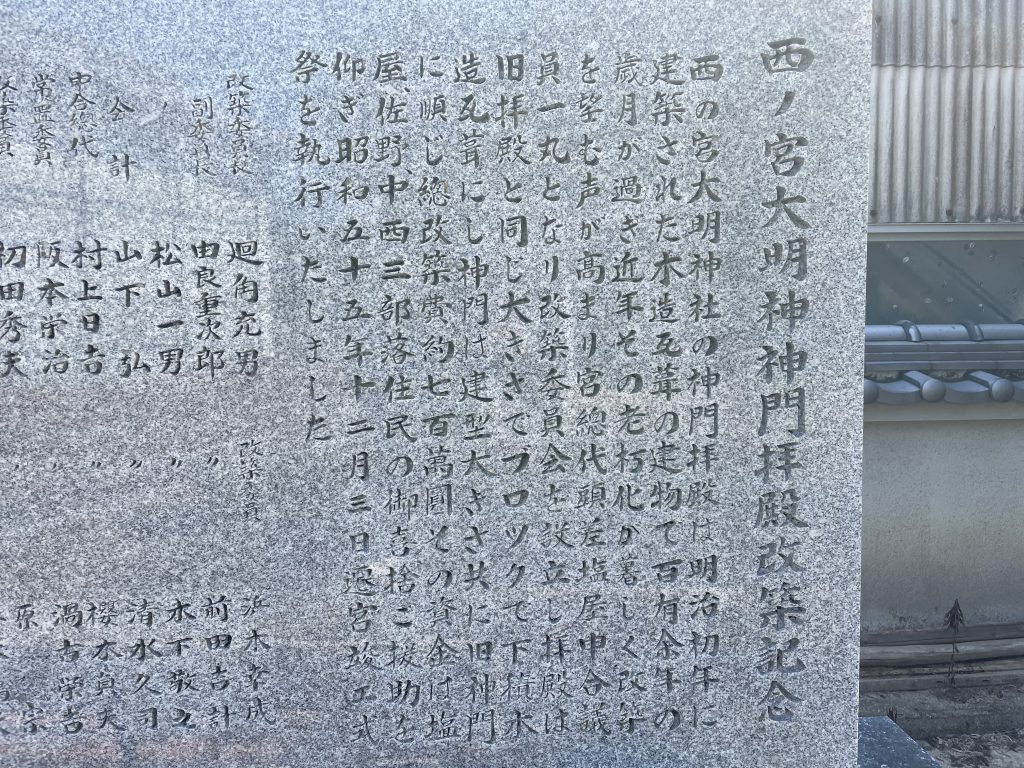 西ノ宮大明神神門拝殿改築記念
西の宮大明神社の神門拝殿は明治初年に
建築された木造瓦葺の建物で百有余年の
歳月が過ぎ近年その老朽化が著しく改築
を望む声が高まり宮總代頭差塩屋申合議
員一丸となり改築委員会を設立し拝殿は
旧拝殿と同じ大きさでブロックで下積木
造瓦葺にし神門は建型大きさ共に旧神門
に順じ總改築費約七百萬圓その資金は塩
屋、佐野、中西三部落住民の御喜捨ご援助を
仰ぎ昭和五十五年十二月三日遷宮竣工式
祭を執行いたしました
改築委員長 廻角充男 改築委員 浜本幸成
副委員長 由良重次郎 〃 前田吉計
〃 松山一男 〃 木下敬之
会計 山下弘 〃 清水久司
申合總代 村上日吉 〃 櫻木貞夫
常置委員 阪本栄治 〃 渦古栄吉
初田秀夫 原 宗